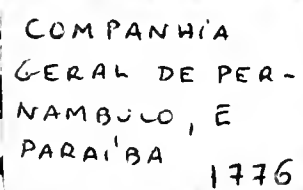 COMPANHIA
GERAL DE PER-
NAMBUCO, E
PARAÍBA
1776